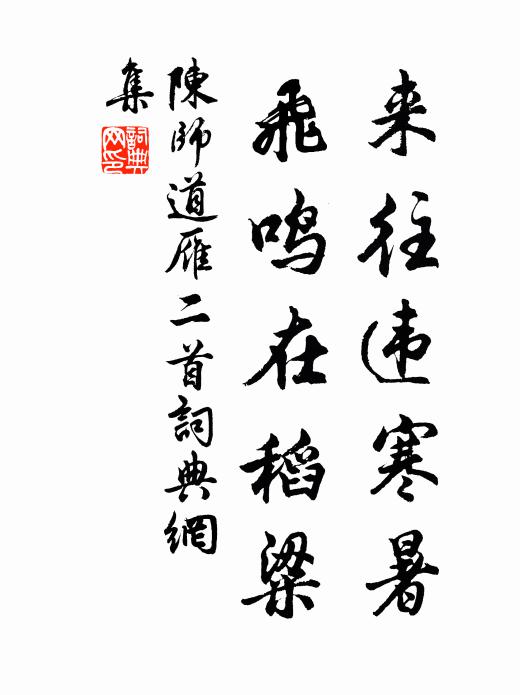 来往违寒暑
飛鸣在稻粱
陳師道雁二首詞典網
集
詞典網印